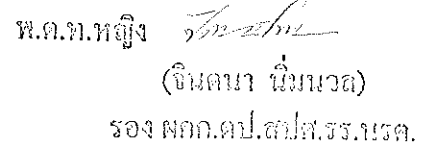 พ.ต.ท.หญิง
(จินตนา นิ่มนวล)
รอง ผกก.ตป.สปศ.รร.นรต.